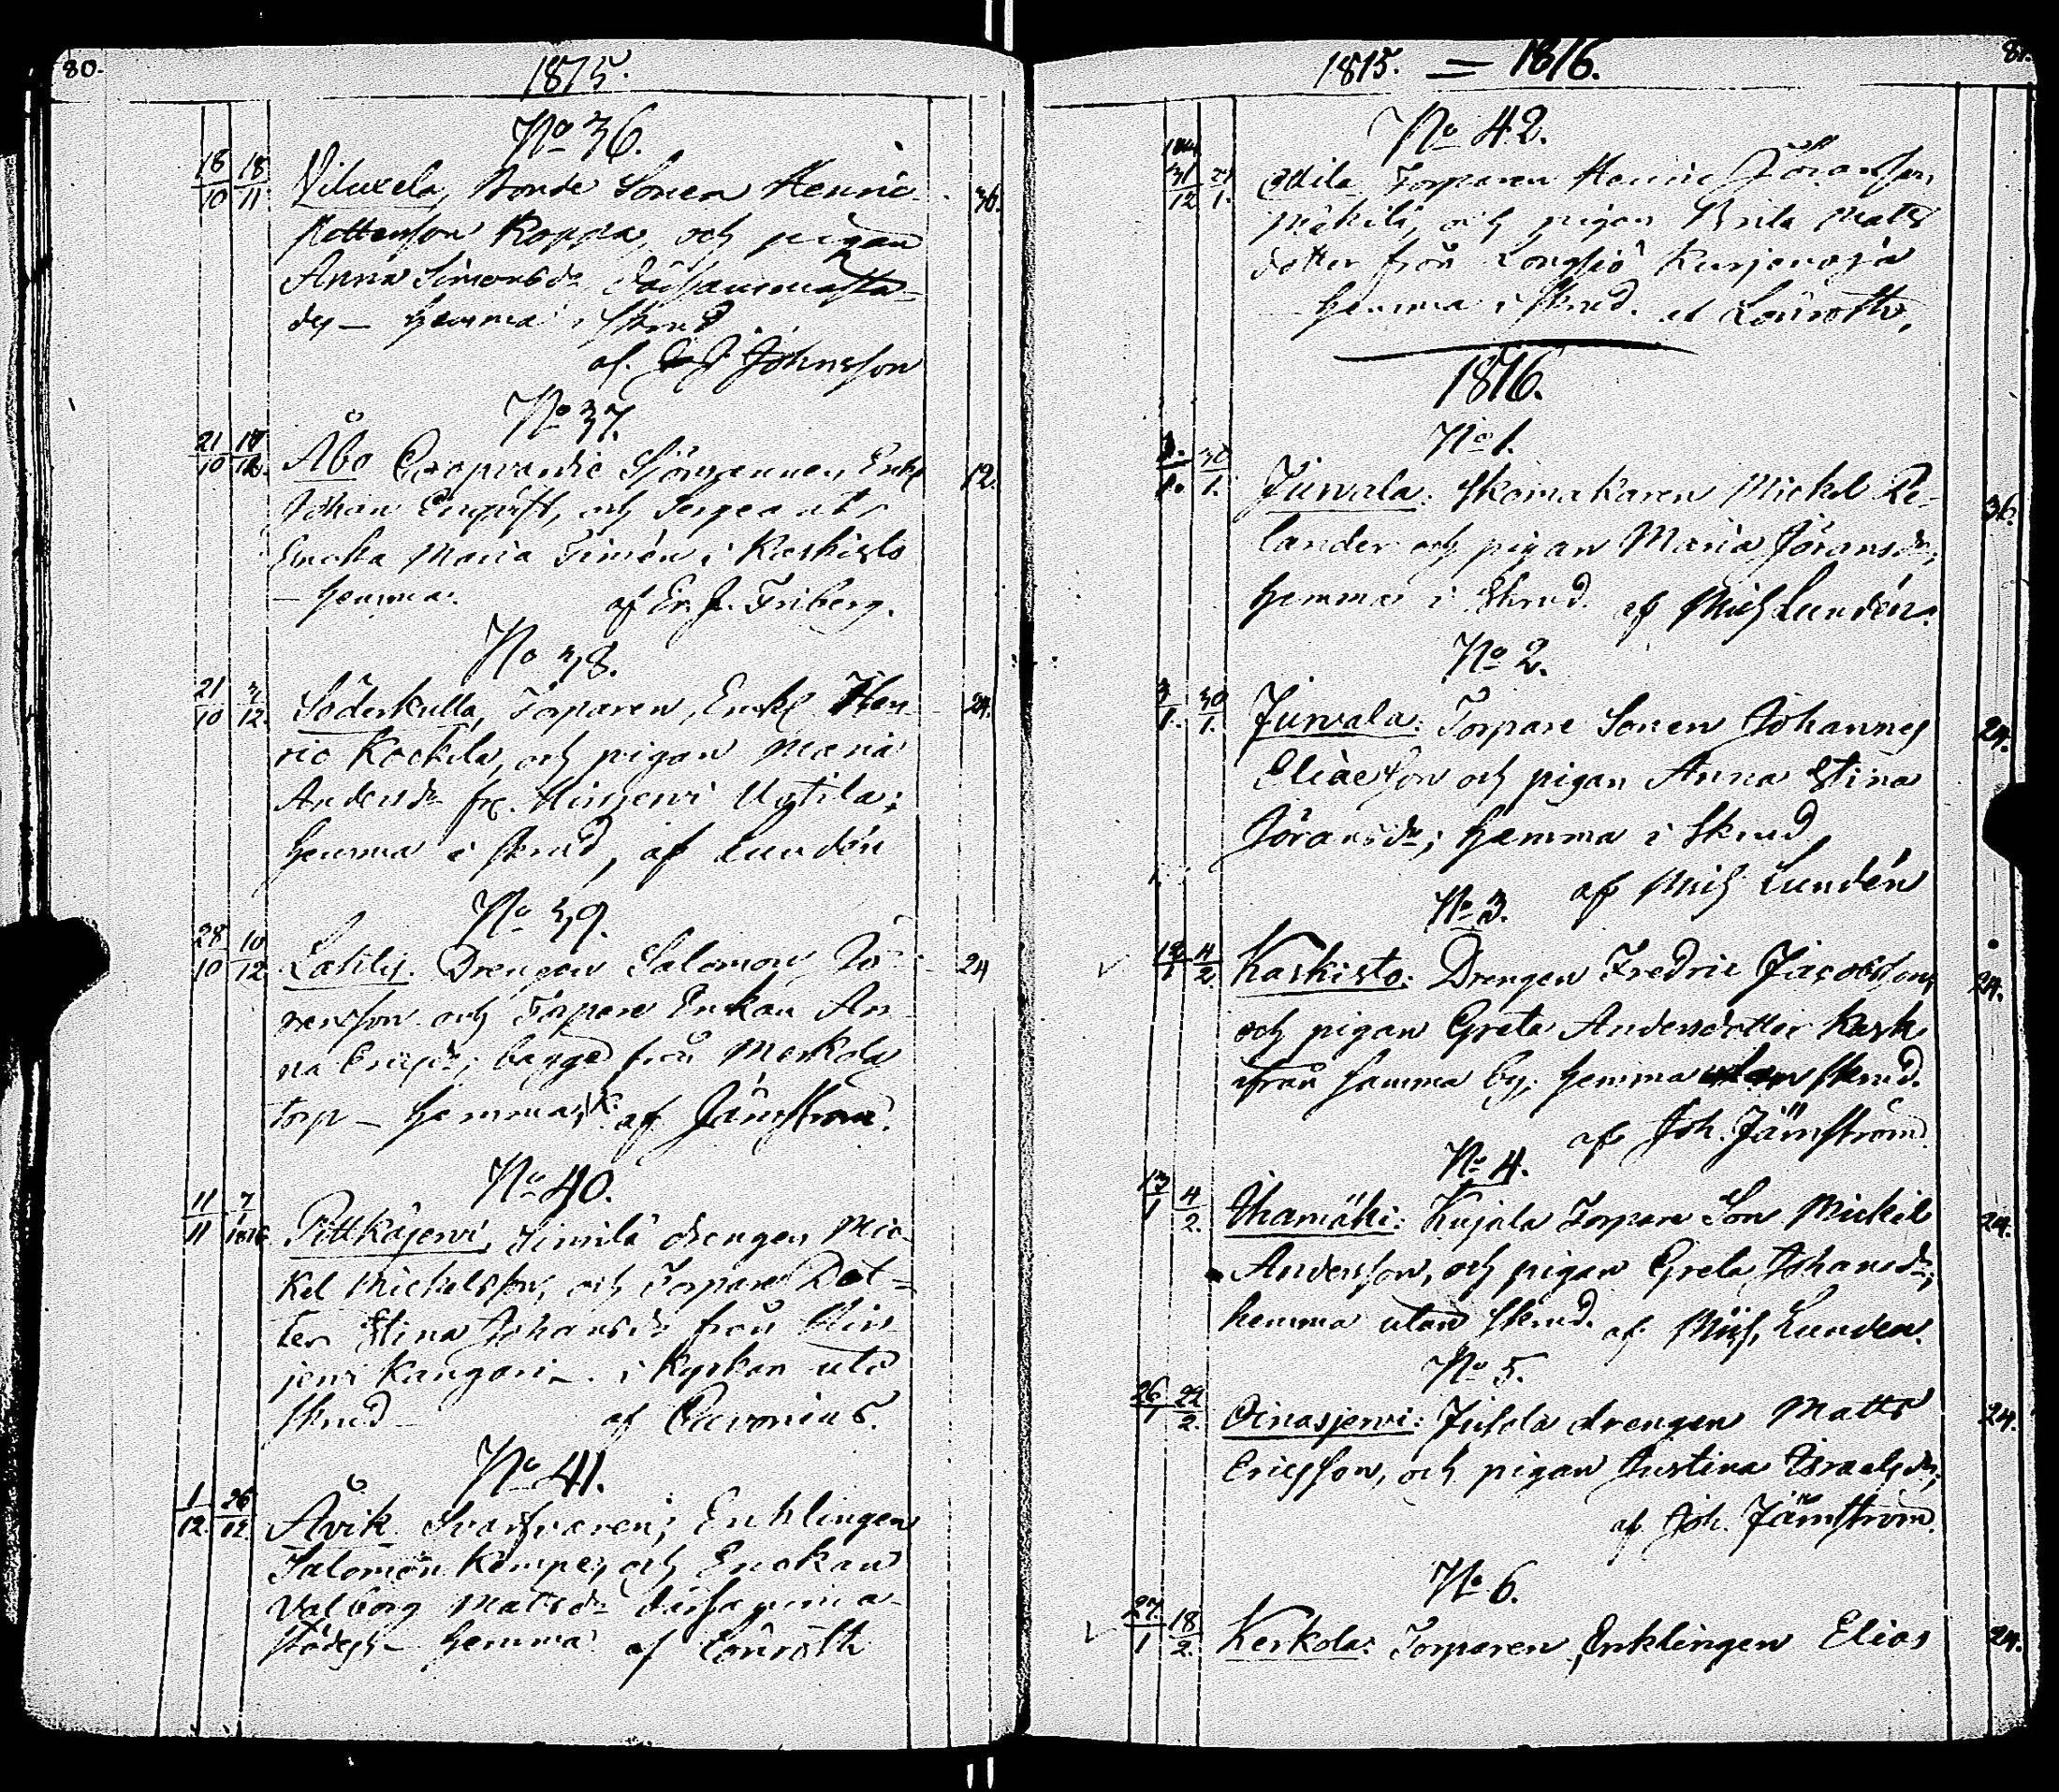 80.
1815.
No 36.
18/10 18/11 Viluxela, Bonde Sonen Henric 36.
Mattsson Koppa, och pigan
Anna Simonsdr därsammasta-
des – hemma i skrud
af. J. Johnsson
No 37.
21/10 Åbo Sjömannen, Enkl 12.
Johan Engvist, och Sergeants
Enckan Maria Timén i Kaskisto
– hemma. af Er. J. Friberg.
No 38.
21/10 3/12. Söderkulla, Torparen, Enkl Hen- 24.
ric Kockila, och pigan Maria
Andersdr fr. Hirsjervi Uytila;
hemma i skrud, af Lundén
No 39.
28/10 10/12 Lahlis. Drengen Salomon Jö- 24
ransson och Torpare Enkan An-
na Ericsdr; bägge från Merkola
torp – hemma, af Järnström.
No 40.
11/11 7/1 1816 Pitkäjervi, Simila drengen Mic-
kel Mickelsson, och Torpare Dot-
ter Stina Johansdr från Hirs-
jervi Kangari – i Kyrkan uti
skrud – af Pavonius.
No 41.
1/12. 26/12. Åvik Svarfvaren, Enklingen
Salomon Kämpe, och Enckan
Valborg Matsdr därsamma-
städes – hemma af Lönroth
81.
1815. = 1816.
No 42.
31/12 21/1. Torparen Henric Jöransson
Mäkilä, och pigan Brita Matts
dotter från Långsjö Kurjenoja
hemma i skrud. af Lönroth,
1816.
No 1.
1/1. 30/1. Jurvala: Skomakaren Mickel Re- 36.
lander och pigan Maria Jöransdr,
hemma i skrud. af Mich Lundén.
No 2.
3/1. 30/1. Jurvala: Torpare Sonen Johannes 24.
Eliaesson och pigan Anna Stina
Jöransdr; hemma i skrud,
af Mich Lundén
No 3.
12/1 4/2. Kaskisto: Drengen Fredric Jacobsson, 24.
och pigan Greta Andersdotter Kask
från samma by; hemma utan skrud.
af Joh. Järnström.
No 4.
13/1 4/2. Ihamäki: Kujala Torpare Son Mickel 24.
Andersson, och pigan Greta Johansdr;
hemma utan skrud. af Mich, Lundén.
No 5.
26/1 22/2. Oinasjervi: Juhola drengen Matts 24.
Ericsson, och pigan Justina Israelsdr;
af Joh. Järnström.
No 6.
27/1 18/2. Kerkola: Torparen, Enklingen Elias 24.